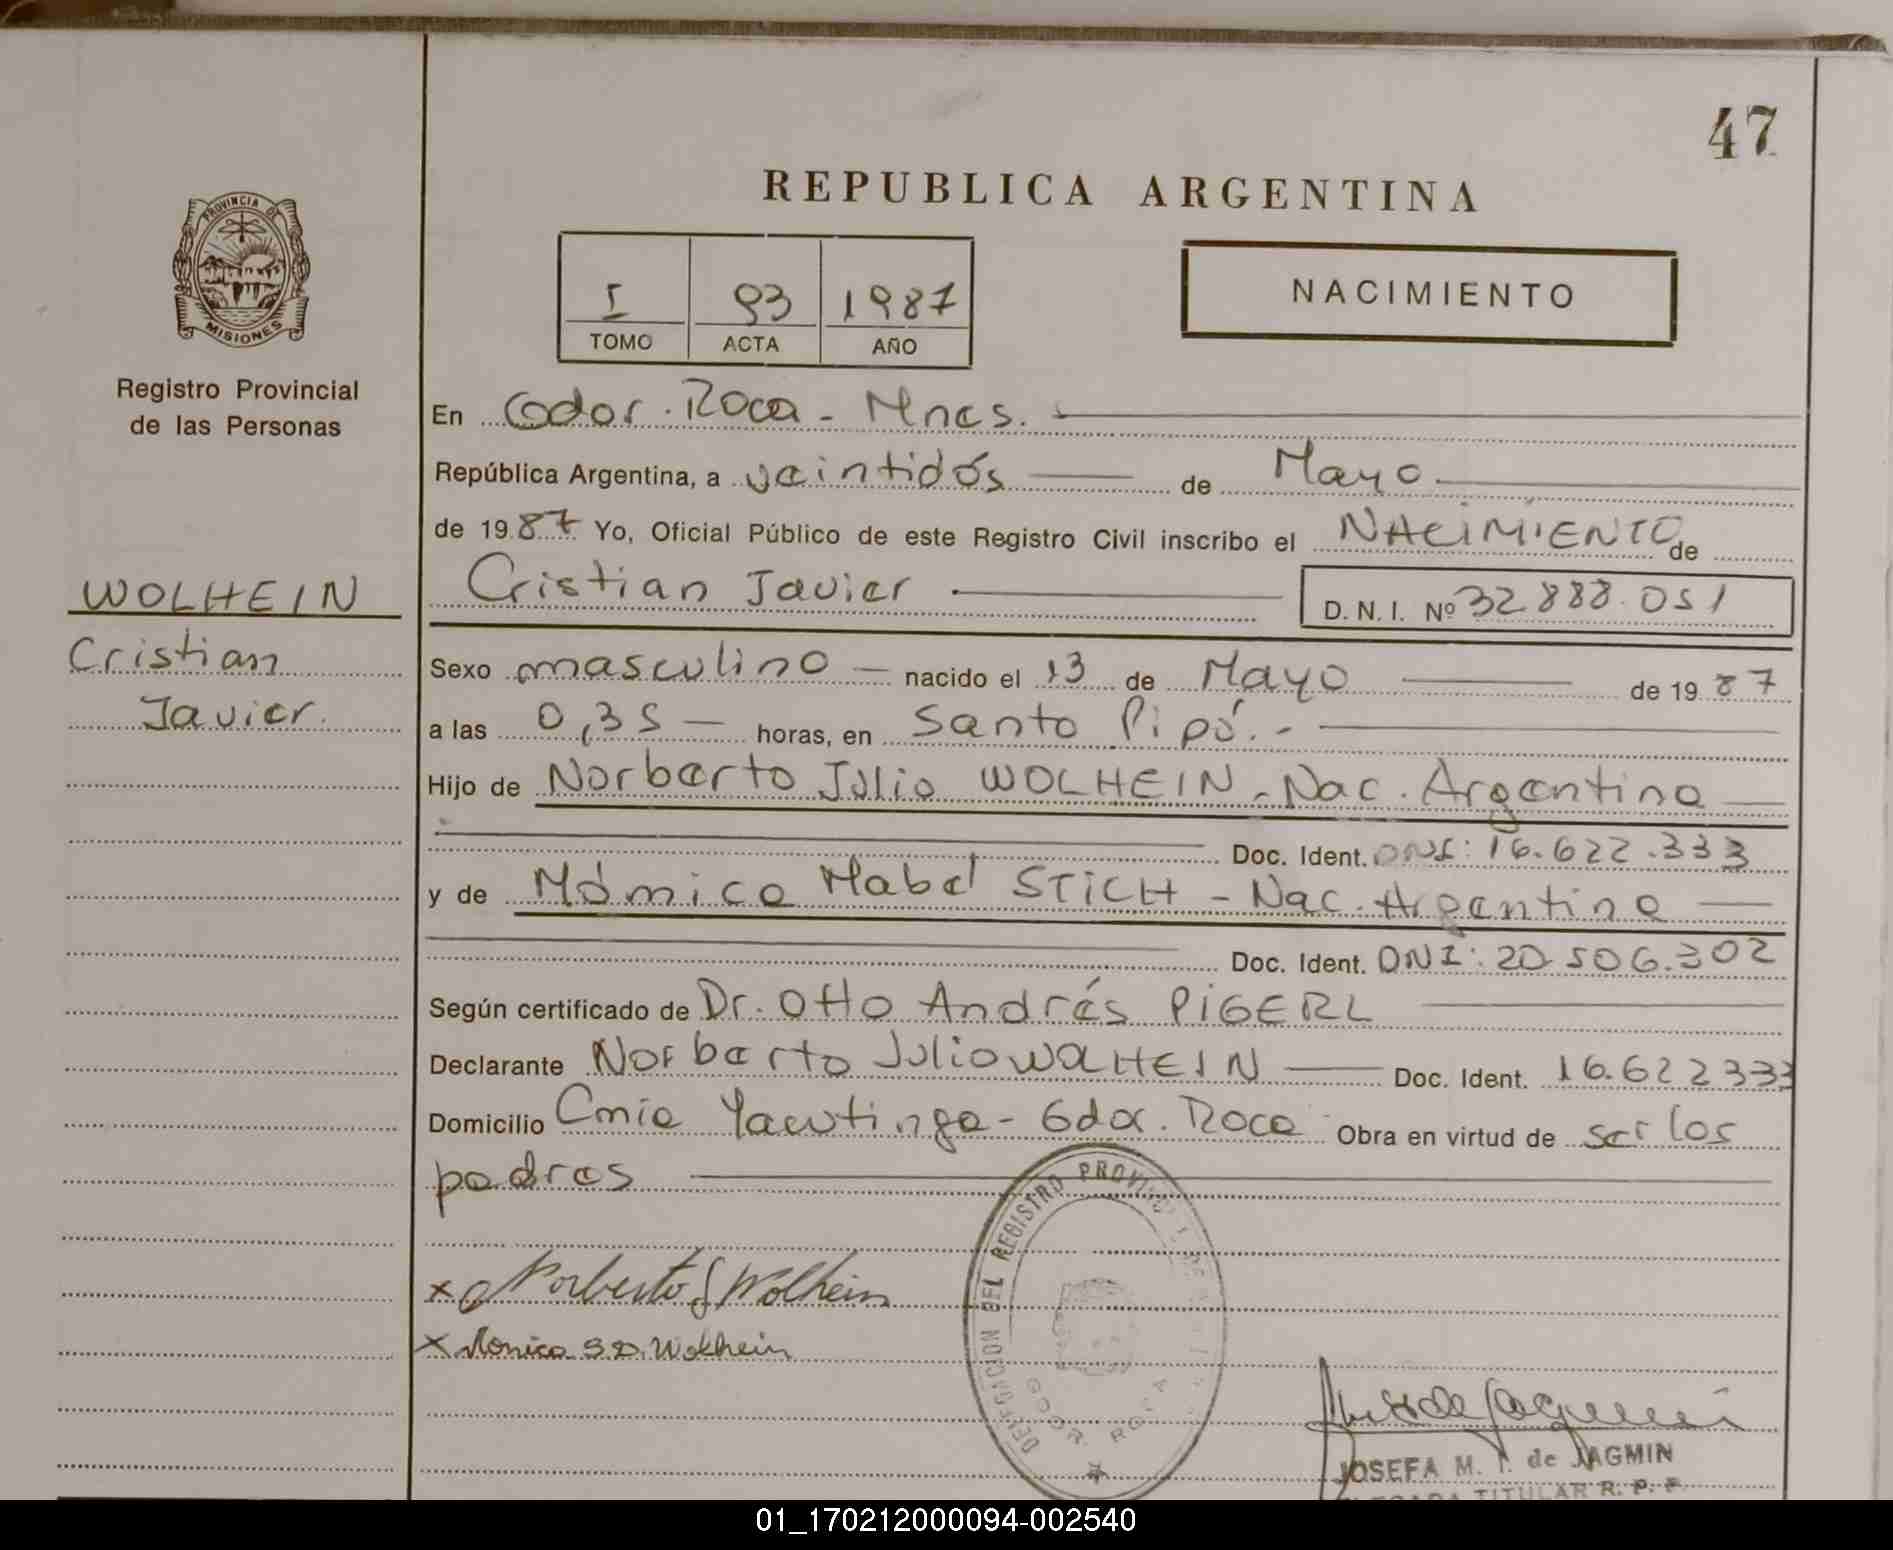 47
REPUBLICA ARGENTINA
PROVINCIA DE
MISIONES
Registro Provincial
de las Personas
I 93 1987
TOMO ACTA AÑO
NACIMIENTO
WOLHEIN
Cristian
Javier.
En Gdor. Roca - Mnes.
República Argentina, a veintidós de Mayo
de 1987 Yo, Oficial Público de este Registro Civil inscribo el NACIMIENTO de
Cristian Javier D. N. I. Nº 32888.051
Sexo masculino nacido el 13 de Mayo de 1987
a las 0,35 horas, en Santo Pipó.-
Hijo de Norberto Julio WOLHEIN - Nac. Argentina
Doc. Ident. DNI: 16.622.333
y de Mónica Mabel STICH - Nac. Argentina
Doc. Ident. DNI: 20.506.302
Según certificado de Dr. Otto Andrés PIGERL
Declarante Norberto Julio WOLHEIN Doc. Ident. 16.622333
Domicilio Cnia Yacutinga - Gdor. Roca Obra en virtud de ser los
padres
DELEGACION DEL REGISTRO PROVINCIAL DE
GDOR. ROCA
x Norberto J Wolhein
x Monica S. D. Wolhein
JOSEFA M. T. de JAGMIN
DELEGADA TITULAR R. P. P.
01_170212000094-002540